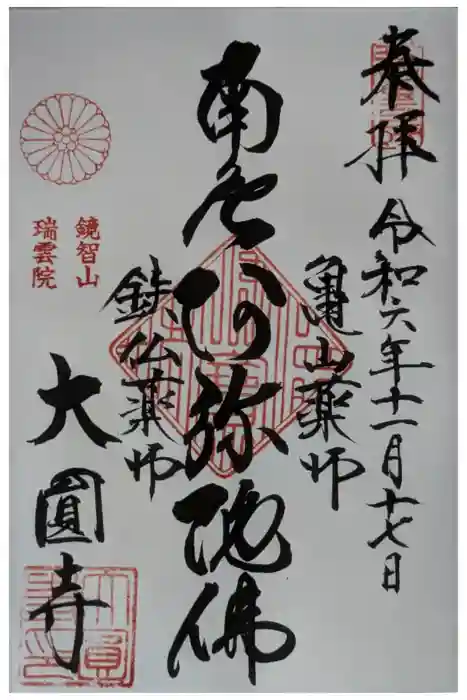 奉拝
令和六年十一月十七日
亀山薬師
南無阿弥陀佛
鉄仏薬師
鏡智山
瑞雲院
大圓寺